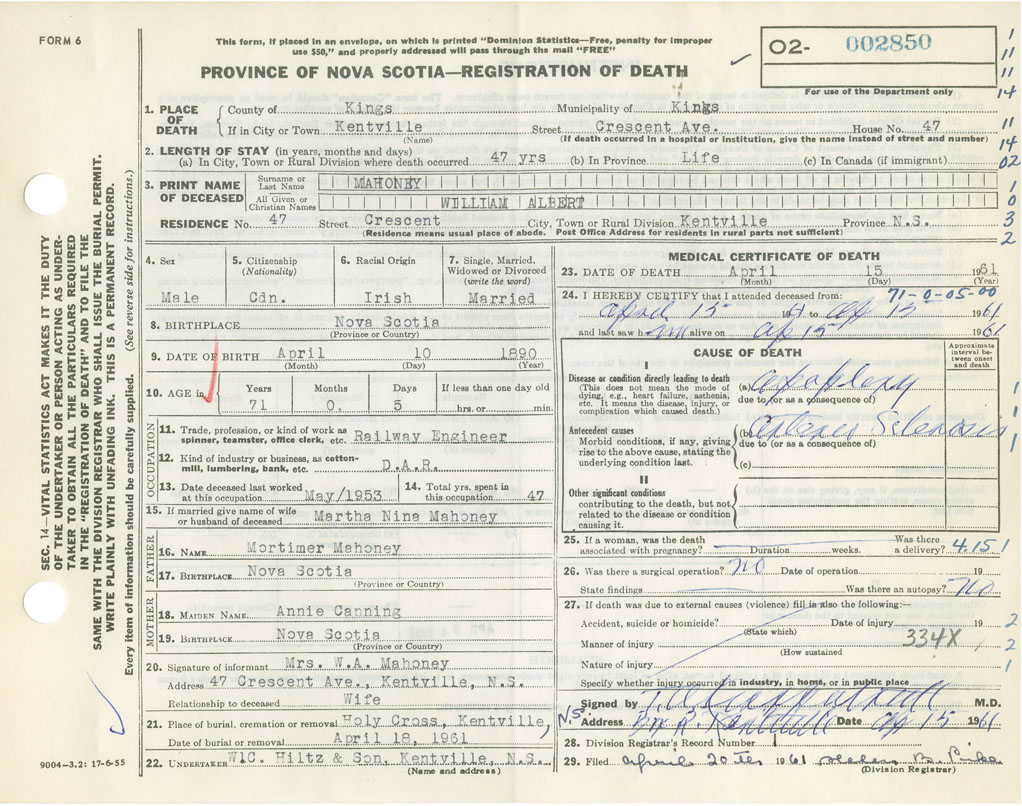 FORM 6
This form, if placed in an envelope, on which is printed "Dominion Statistics—Free, penalty for improper
use $50," and properly addressed will pass through the mail "FREE"
PROVINCE OF NOVA SCOTIA—REGISTRATION OF DEATH
O2- 002850
For use of the Department only
1. PLACE OF DEATH
County of Kings Municipality of Kings
If in City or Town Kentville Street Crescent Ave. House No. 47
(Name) (If death occurred in a hospital or institution, give the name instead of street and number)
2. LENGTH OF STAY (in years, months and days)
(a) In City, Town or Rural Division where death occurred 47 yrs (b) In Province Life (c) In Canada (if immigrant)
3. PRINT NAME OF DECEASED
Surname or Last Name MAHONEY
All Given or Christian Names WILLIAM ALBERT
RESIDENCE No. 47 Street Crescent City, Town or Rural Division Kentville Province N.S.
(Residence means usual place of abode. Post Office Address for residents in rural parts not sufficient)
4. Sex
Male
5. Citizenship (Nationality)
Cdn.
6. Racial Origin
Irish
7. Single, Married, Widowed or Divorced (write the word)
Married
8. BIRTHPLACE Nova Scotia
(Province or Country)
9. DATE OF BIRTH April 10 1890
(Month) (Day) (Year)
10. AGE in
Years Months Days If less than one day old
71 0, 5 hrs. or min.
OCCUPATION
11. Trade, profession, or kind of work as
spinner, teamster, office clerk, etc. Railway Engineer
12. Kind of industry or business, as cotton-
mill, lumbering, bank, etc. D.A.R.
13. Date deceased last worked at this occupation May/1953
14. Total yrs. spent in this occupation 47
15. If married give name of wife
or husband of deceased Martha Nina Mahoney
FATHER
16. NAME Mortimer Mahoney
17. BIRTHPLACE Nova Scotia
(Province or Country)
MOTHER
18. MAIDEN NAME Annie Canning
19. BIRTHPLACE Nova Scotia
(Province or Country)
20. Signature of informant Mrs. W.A. Mahoney
Address 47 Crescent Ave., Kentville, N.S.
Relationship to deceased Wife
21. Place of burial, cremation or removal Holy Cross, Kentville,
N.S.
Date of burial or removal April 18, 1961
22. UNDERTAKER W.C. Hiltz & Son, Kentville, N.S.
(Name and address)
9004-3.2: 17-6-55
MEDICAL CERTIFICATE OF DEATH
23. DATE OF DEATH April 15 1961
(Month) (Day) (Year)
24. I HEREBY CERTIFY that I attended deceased from: 71-0-05-00
April 15 1961 to Ap 15 1961
and last saw him alive on Ap 15 1961
CAUSE OF DEATH
Approximate interval between onset and death
I
Disease or condition directly leading to death
(This does not mean the mode of
dying, e.g., heart failure, asthenia,
etc. It means the disease, injury, or
complication which caused death.)
(a)
due to (or as a consequence of)
Antecedent causes
Morbid conditions, if any, giving
rise to the above cause, stating the
underlying condition last.
(b) Arterio Sclerosis
due to (or as a consequence of)
(c)
II
Other significant conditions
contributing to the death, but not
related to the disease or condition
causing it.
25. If a woman, was the death Was there
associated with pregnancy? Duration weeks. a delivery? 4.15 1
26. Was there a surgical operation? no Date of operation 19
State findings Was there an autopsy? no
27. If death was due to external causes (violence) fill in also the following:—
Accident, suicide or homicide? Date of injury 19
(State which)
Manner of injury 334X
(How sustained
Nature of injury
Specify whether injury occurred in industry, in home, or in public place
Signed by M.D.
Address Kentville Date Ap 15 1961
28. Division Registrar's Record Number
29. Filed April 20th 1961
(Division Registrar)
1
11
11
14
11
14
02
1
0
3
2
1
1
2
2
1
SEC. 14—VITAL STATISTICS ACT MAKES IT THE DUTY
OF THE UNDERTAKER OR PERSON ACTING AS UNDER-
TAKER TO OBTAIN ALL THE PARTICULARS REQUIRED
IN THE "REGISTRATION OF DEATH" AND TO FILE THE
SAME WITH THE DIVISION REGISTRAR WHO SHALL ISSUE THE BURIAL PERMIT.
WRITE PLAINLY WITH UNFADING INK. THIS IS A PERMANENT RECORD.
Every item of information should be carefully supplied. (See reverse side for instructions.)